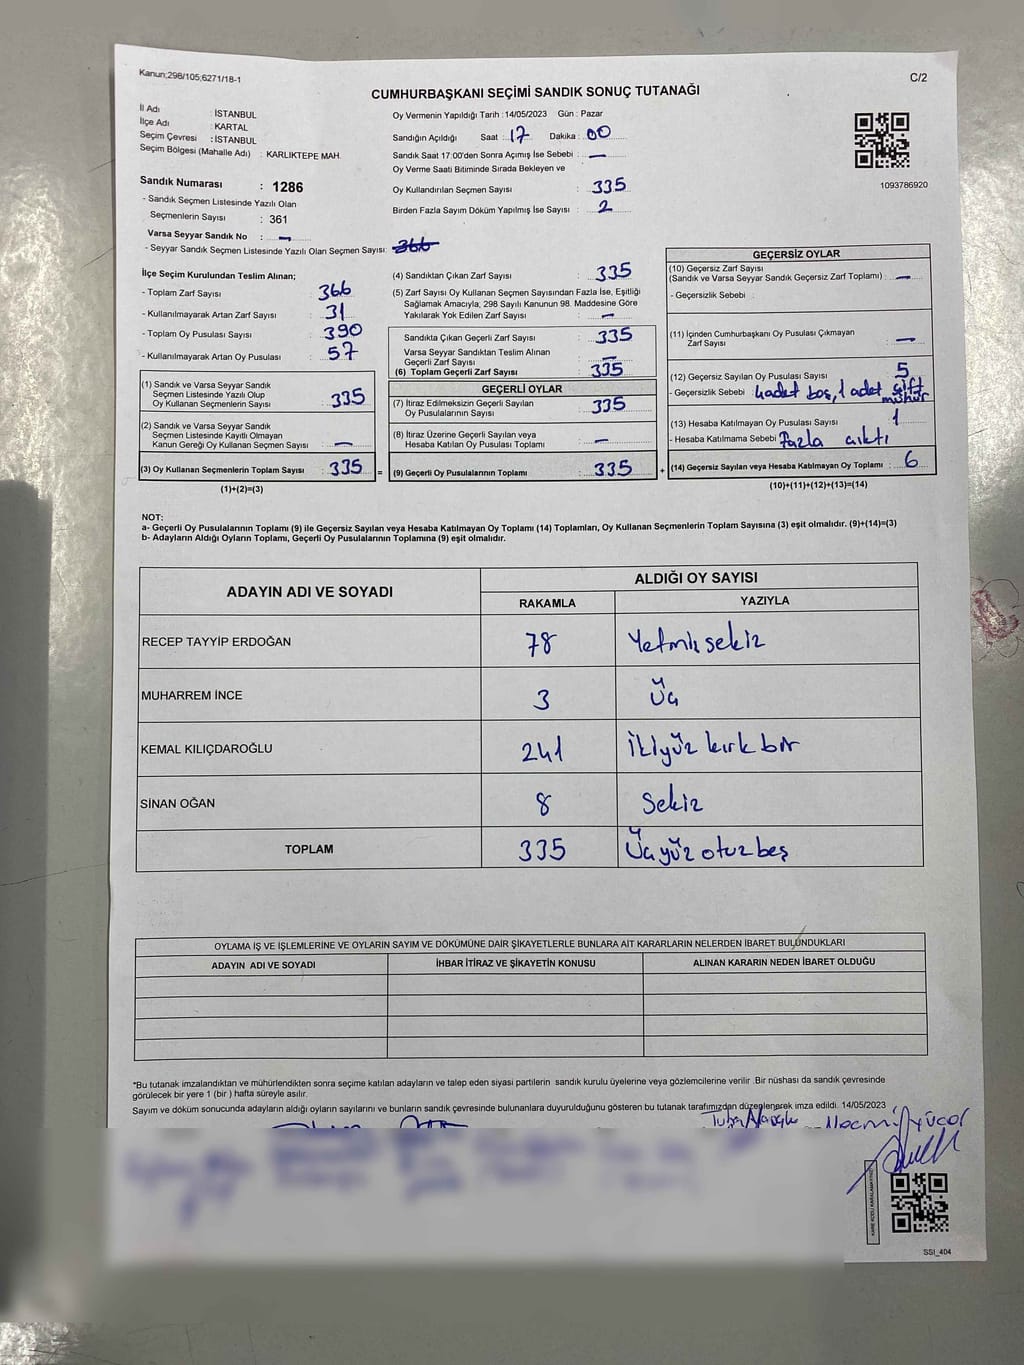 Kanun;298/105;6271/18-1
C/2
CUMHURBAŞKANI SEÇİMİ SANDIK SONUÇ TUTANAĞI
İl Adı : İSTANBUL
İlçe Adı : KARTAL
Seçim Çevresi : İSTANBUL
Seçim Bölgesi (Mahalle Adı) : KARLIKTEPE MAH.
Sandık Numarası : 1286
- Sandık Seçmen Listesinde Yazılı Olan
Seçmenlerin Sayısı : 361
Varsa Seyyar Sandık No : -
- Seyyar Sandık Seçmen Listesinde Yazılı Olan Seçmen Sayısı: 366
Oy Vermenin Yapıldığı Tarih : 14/05/2023 Gün : Pazar
Sandığın Açıldığı Saat : 17 Dakika : 00
Sandık Saat 17:00'den Sonra Açımış İse Sebebi : -
Oy Verme Saati Bitiminde Sırada Bekleyen ve
Oy Kullandırılan Seçmen Sayısı : 335
Birden Fazla Sayım Döküm Yapılmış İse Sayısı : 2
1093786920
İlçe Seçim Kurulundan Teslim Alınan;
- Toplam Zarf Sayısı : 366
- Kullanılmayarak Artan Zarf Sayısı : 31
- Toplam Oy Pusulası Sayısı : 390
- Kullanılmayarak Artan Oy Pusulası : 57
(1) Sandık ve Varsa Seyyar Sandık
Seçmen Listesinde Yazılı Olup
Oy Kullanan Seçmenlerin Sayısı : 335
(2) Sandık ve Varsa Seyyar Sandık
Seçmen Listesinde Kayıtlı Olmayan
Kanun Gereği Oy Kullanan Seçmen Sayısı : -
(3) Oy Kullanan Seçmenlerin Toplam Sayısı : 335 =
(1)+(2)=(3)
(4) Sandıktan Çıkan Zarf Sayısı : 335
(5) Zarf Sayısı Oy Kullanan Seçmen Sayısından Fazla İse, Eşitliği
Sağlamak Amacıyla, 298 Sayılı Kanunun 98. Maddesine Göre
Yakılarak Yok Edilen Zarf Sayısı : -
Sandıkta Çıkan Geçerli Zarf Sayısı : 335
Varsa Seyyar Sandıktan Teslim Alınan
Geçerli Zarf Sayısı : -
(6) Toplam Geçerli Zarf Sayısı : 335
GEÇERLİ OYLAR
(7) İtiraz Edilmeksizin Geçerli Sayılan
Oy Pusulalarının Sayısı : 335
(8) İtiraz Üzerine Geçerli Sayılan veya
Hesaba Katılan Oy Pusulası Toplamı : -
(9) Geçerli Oy Pusulalarının Toplamı : 335 +
GEÇERSİZ OYLAR
(10) Geçersiz Zarf Sayısı
(Sandık ve Varsa Seyyar Sandık Geçersiz Zarf Toplamı) : -
- Geçersizlik Sebebi :
(11) İçinden Cumhurbaşkanı Oy Pusulası Çıkmayan
Zarf Sayısı : -
(12) Geçersiz Sayılan Oy Pusulası Sayısı : 5
- Geçersizlik Sebebi : 4 adet boş, 1 adet çift
mühür
(13) Hesaba Katılmayan Oy Pusulası Sayısı : 1
- Hesaba Katılmama Sebebi : Fazla çıktı
(14) Geçersiz Sayılan veya Hesaba Katılmayan Oy Toplamı : 6
(10)+(11)+(12)+(13)=(14)
NOT:
a- Geçerli Oy Pusulalarının Toplamı (9) ile Geçersiz Sayılan veya Hesaba Katılmayan Oy Toplamı (14) Toplamları, Oy Kullanan Seçmenlerin Toplam Sayısına (3) eşit olmalıdır. (9)+(14)=(3)
b- Adayların Aldığı Oyların Toplamı, Geçerli Oy Pusulalarının Toplamına (9) eşit olmalıdır.
ADAYIN ADI VE SOYADI ALDIĞI OY SAYISI
RAKAMLA YAZIYLA
RECEP TAYYİP ERDOĞAN 78 Yetmiş sekiz
MUHARREM İNCE 3 Üç
KEMAL KILIÇDAROĞLU 241 İkiyüz kırk bir
SİNAN OĞAN 8 Sekiz
TOPLAM 335 Üçyüz otuz beş
OYLAMA İŞ VE İŞLEMLERİNE VE OYLARIN SAYIM VE DÖKÜMÜNE DAİR ŞİKAYETLERLE BUNLARA AİT KARARLARIN NELERDEN İBARET BULUNDUKLARI
ADAYIN ADI VE SOYADI İHBAR İTİRAZ VE ŞİKAYETİN KONUSU ALINAN KARARIN NEDEN İBARET OLDUĞU
*Bu tutanak imzalandıktan ve mühürlendikten sonra seçime katılan adayların ve talep eden siyasi partilerin sandık kurulu üyelerine veya gözlemcilerine verilir .Bir nüshası da sandık çevresinde
görülecek bir yere 1 (bir ) hafta süreyle asılır.
Sayım ve döküm sonucunda adayların aldığı oyların sayılarını ve bunların sandık çevresinde bulunanlara duyurulduğunu gösteren bu tutanak tarafımızdan düzenlenerek imza edildi. 14/05/2023
SSI_404